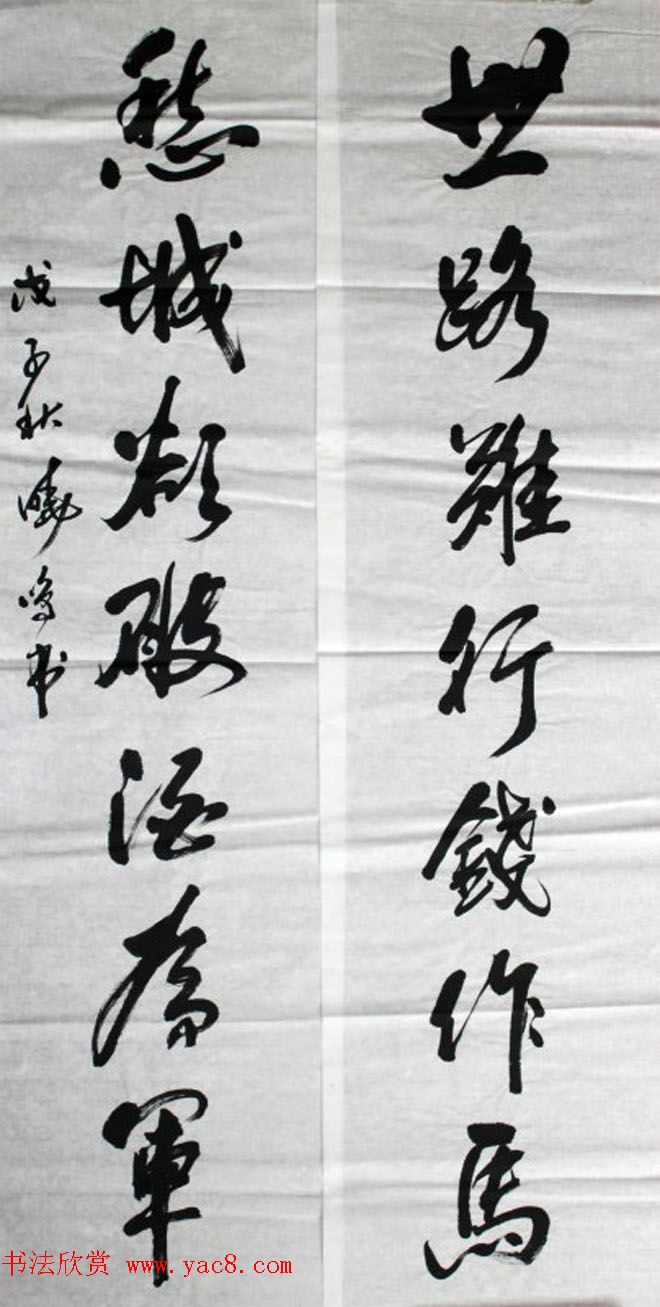 世路難行錢作馬
愁城欲破酒為軍
戊子秋晓鸣书
书法欣赏 www.yac8.com